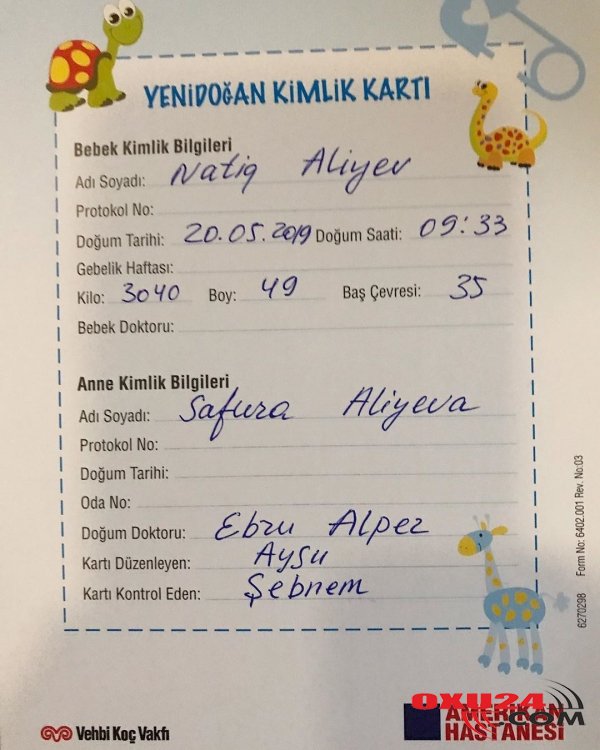 YENİDOĞAN KİMLİK KARTI
Bebek Kimlik Bilgileri
Adı Soyadı: Natiq Aliyev
Protokol No:
Doğum Tarihi: 20.05.2019 Doğum Saati: 09:33
Gebelik Haftası:
Kilo: 3040 Boy: 49 Baş Çevresi: 35
Bebek Doktoru:
Anne Kimlik Bilgileri
Adı Soyadı: Safura Aliyeva
Protokol No:
Doğum Tarihi:
Oda No:
Doğum Doktoru: Ebru Alper
Kartı Düzenleyen: Aysu
Kartı Kontrol Eden: Şebnem
6270298 Form No: 6402.001 Rev. No:03
Vehbi Koç Vakfı
AMERİKAN
HASTANESİ
OXU24
.COM